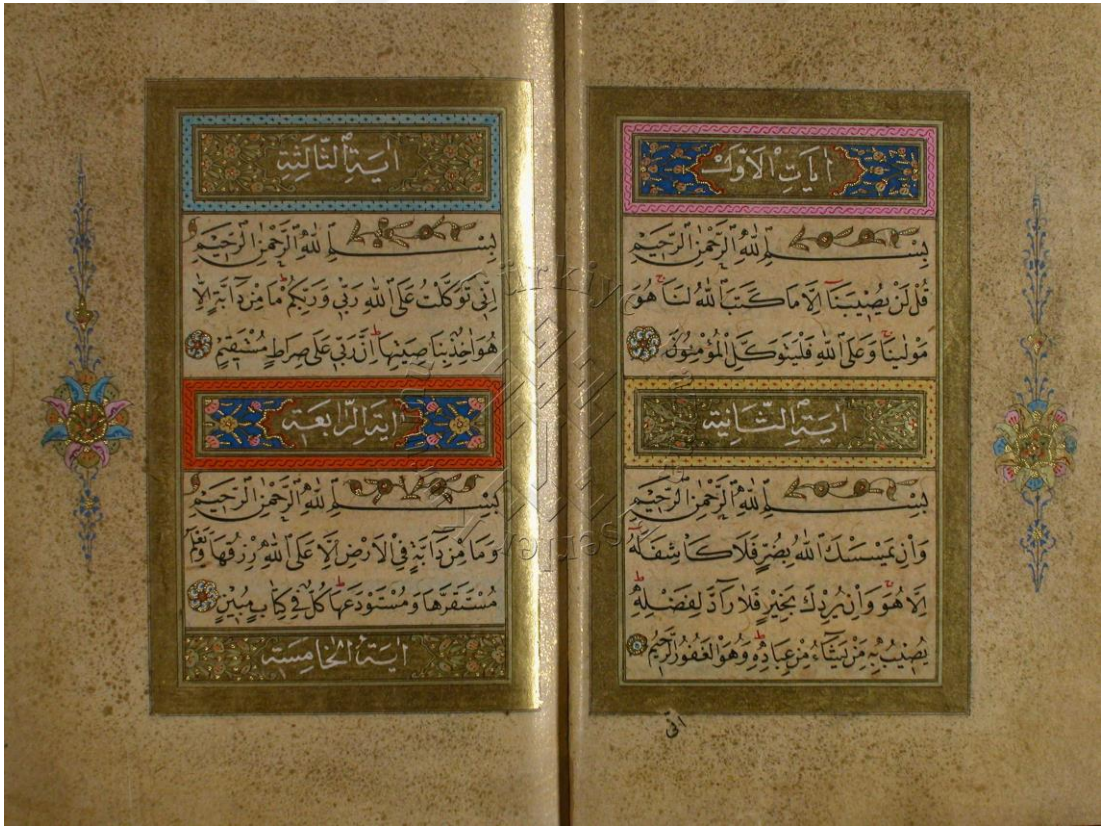 اٰيَاتِ الْاَوَّلُ
بِسْمِ اللّٰهِ الرَّحْمٰنِ الرَّحِيْمِ
قُلْ لَنْ يُصِيْبَنَٓا اِلَّا مَا كَتَبَ اللّٰهُ لَنَا هُوَ
مَوْلٰينَا وَعَلَى اللّٰهِ فَلْيَتَوَكَّلِ الْمُؤْمِنُونَ
اٰيَةُ الثَّانِيَةِ
بِسْمِ اللّٰهِ الرَّحْمٰنِ الرَّحِيْمِ
وَاِنْ يَمْسَسْكَ اللّٰهُ بِضُرٍّ فَلَا كَاشِفَ لَهُٓ
اِلَّا هُوَ وَاِنْ يُرِدْكَ بِخَيْرٍ فَلَا رَٓادَّ لِفَضْلِهٖ
يُصِيْبُ بِهٖ مَنْ يَشَٓاءُ مِنْ عِبَادِهٖ وَهُوَ الْغَفُورُ الرَّحِيْمُ
انى
اٰيَةُ الثَّالِثَةِ
بِسْمِ اللّٰهِ الرَّحْمٰنِ الرَّحِيْمِ
اِنِّى تَوَكَّلْتُ عَلَى اللّٰهِ رَبِّى وَرَبِّكُمْ مَا مِنْ دَٓابَّةٍ اِلَّا
هُوَ اٰخِذٌ بِنَاصِيَتِهَا اِنَّ رَبِّى عَلٰى صِرَاطٍ مُسْتَقِيْمٍ
اٰيَةُ الرَّابِعَةِ
بِسْمِ اللّٰهِ الرَّحْمٰنِ الرَّحِيْمِ
وَمَا مِنْ دَٓابَّةٍ فِى الْاَرْضِ اِلَّا عَلَى اللّٰهِ رِزْقُهَا وَيَعْلَمُ
مُسْتَقَرَّهَا وَمُسْتَوْدَعَهَا كُلٌّ فِى كِتَابٍ مُبِيْنٍ
اٰيَةُ الْخَامِسَةِ